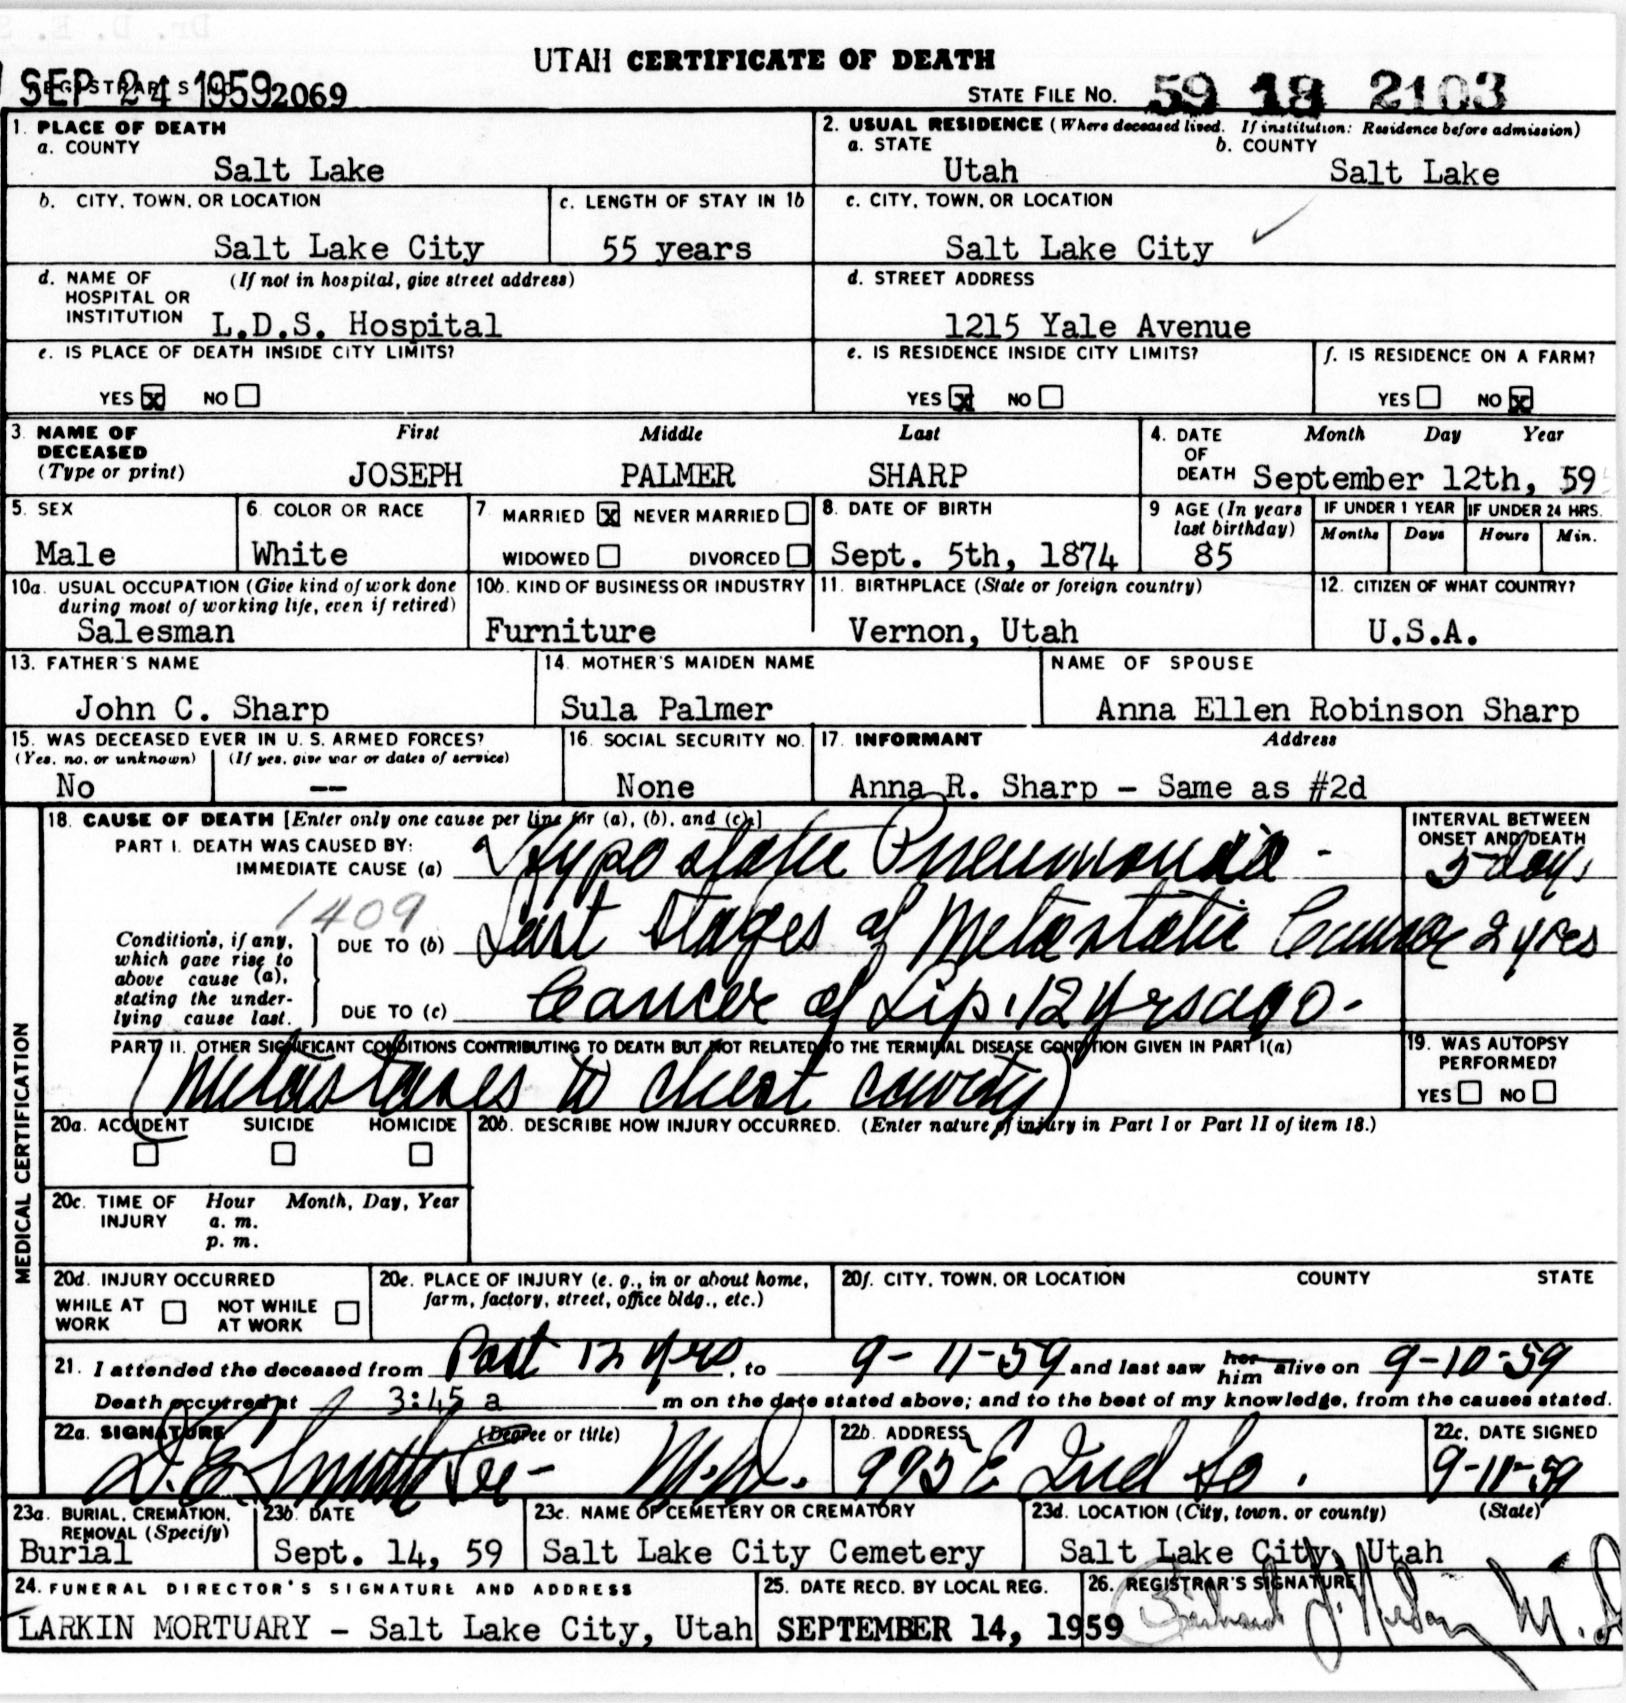 UTAH CERTIFICATE OF DEATH
SEP 24 1959 2069
STATE FILE NO. 59 18 2103
1. PLACE OF DEATH
a. COUNTY
Salt Lake
2. USUAL RESIDENCE (Where deceased lived. If institution: Residence before admission)
a. STATE b. COUNTY
Utah Salt Lake
b. CITY, TOWN, OR LOCATION
Salt Lake City
c. LENGTH OF STAY IN 1b
55 years
c. CITY, TOWN, OR LOCATION
Salt Lake City
d. NAME OF (If not in hospital, give street address)
HOSPITAL OR
INSTITUTION L.D.S. Hospital
d. STREET ADDRESS
1215 Yale Avenue
e. IS PLACE OF DEATH INSIDE CITY LIMITS?
YES x NO
e. IS RESIDENCE INSIDE CITY LIMITS?
YES x NO
f. IS RESIDENCE ON A FARM?
YES NO x
3. NAME OF First Middle Last
DECEASED
(Type or print) JOSEPH PALMER SHARP
4. DATE Month Day Year
OF
DEATH September 12th, 59
5. SEX
Male
6. COLOR OR RACE
White
7. MARRIED x NEVER MARRIED
WIDOWED DIVORCED
8. DATE OF BIRTH
Sept. 5th, 1874
9 AGE (In years
last birthday)
85
IF UNDER 1 YEAR IF UNDER 24 HRS.
Months Days Hours Min.
10a. USUAL OCCUPATION (Give kind of work done
during most of working life, even if retired)
Salesman
10b. KIND OF BUSINESS OR INDUSTRY
Furniture
11. BIRTHPLACE (State or foreign country)
Vernon, Utah
12. CITIZEN OF WHAT COUNTRY?
U.S.A.
13. FATHER'S NAME
John C. Sharp
14. MOTHER'S MAIDEN NAME
Sula Palmer
NAME OF SPOUSE
Anna Ellen Robinson Sharp
15. WAS DECEASED EVER IN U. S. ARMED FORCES?
(Yes, no, or unknown) (If yes, give war or dates of service)
No --
16. SOCIAL SECURITY NO.
None
17. INFORMANT Address
Anna R. Sharp - Same as #2d
MEDICAL CERTIFICATION
18. CAUSE OF DEATH [Enter only one cause per line for (a), (b), and (c).]
PART I. DEATH WAS CAUSED BY:
IMMEDIATE CAUSE (a) Hypostatic Pneumonia -
INTERVAL BETWEEN
ONSET AND DEATH
3 days
1409
Conditions, if any,
which gave rise to
above cause (a),
stating the under-
lying cause last.
DUE TO (b) Last Stages of Metastatic Cancer 2 yrs
DUE TO (c) Cancer of Lip. 12 yrs ago -
PART II. OTHER SIGNIFICANT CONDITIONS CONTRIBUTING TO DEATH BUT NOT RELATED TO THE TERMINAL DISEASE CONDITION GIVEN IN PART I(a)
(Metastases to chest cavity)
19. WAS AUTOPSY
PERFORMED?
YES NO
20a. ACCIDENT SUICIDE HOMICIDE
20b. DESCRIBE HOW INJURY OCCURRED. (Enter nature of injury in Part I or Part II of item 18.)
20c. TIME OF Hour Month, Day, Year
INJURY a. m.
p. m.
20d. INJURY OCCURRED
WHILE AT NOT WHILE
WORK AT WORK
20e. PLACE OF INJURY (e. g., in or about home,
farm, factory, street, office bldg., etc.)
20f. CITY, TOWN, OR LOCATION COUNTY STATE
21. I attended the deceased from Past 12 yrs, to 9-11-59 and last saw her him alive on 9-10-59
Death occurred at 3:45 a m on the date stated above; and to the best of my knowledge, from the causes stated.
22a. SIGNATURE (Degree or title)
D.E. M.D.
22b. ADDRESS
995 E 2nd So.
22c. DATE SIGNED
9-11-59
23a. BURIAL, CREMATION,
REMOVAL (Specify)
Burial
23b. DATE
Sept. 14, 59
23c. NAME OF CEMETERY OR CREMATORY
Salt Lake City Cemetery
23d. LOCATION (City, town, or county) (State)
Salt Lake City, Utah
24. FUNERAL DIRECTOR'S SIGNATURE AND ADDRESS
LARKIN MORTUARY - Salt Lake City, Utah
25. DATE RECD. BY LOCAL REG.
SEPTEMBER 14, 1959
26. REGISTRAR'S SIGNATURE
M.D.